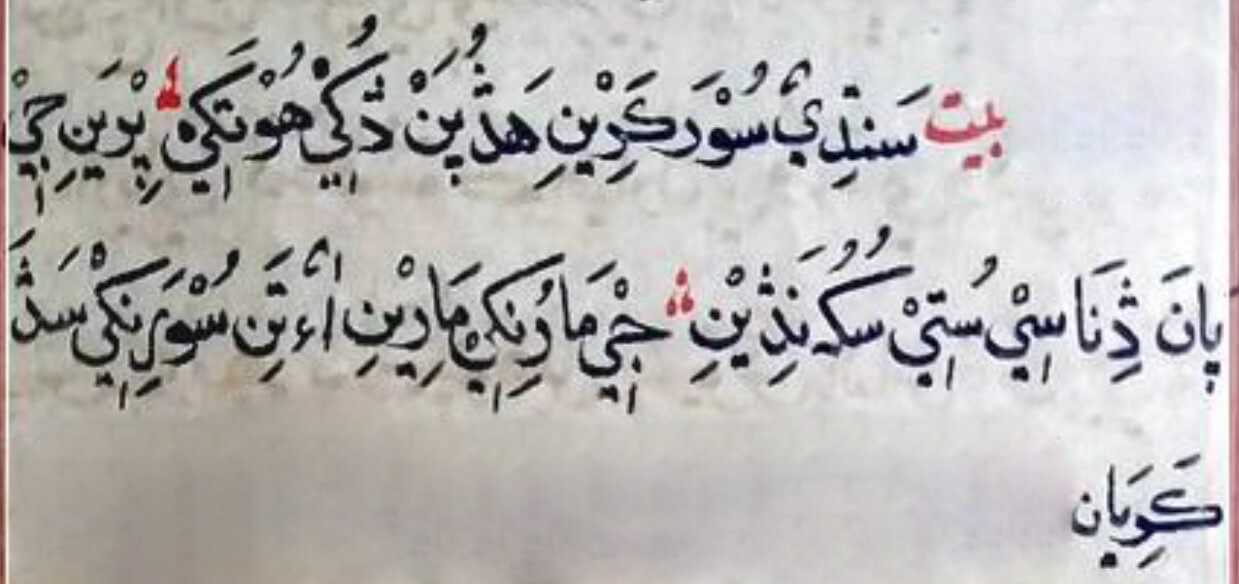 بيت سَنڌِيَ سُوْرَ ڪَرِيْنِ هَڏَ پُنْ ڏُکِيْ هوُتَکي؞ پِرْيَنِ جٖيْ
پانَ ڏِنَا سٖيْ سُتيْ سُکَہ نَڏِيْنِ؞ جٖيْ مَارُنِکيْ مَارِيْنِ اُءتَنِ سُوْرَنِکيْ سَڏَ
ڪَرِيان